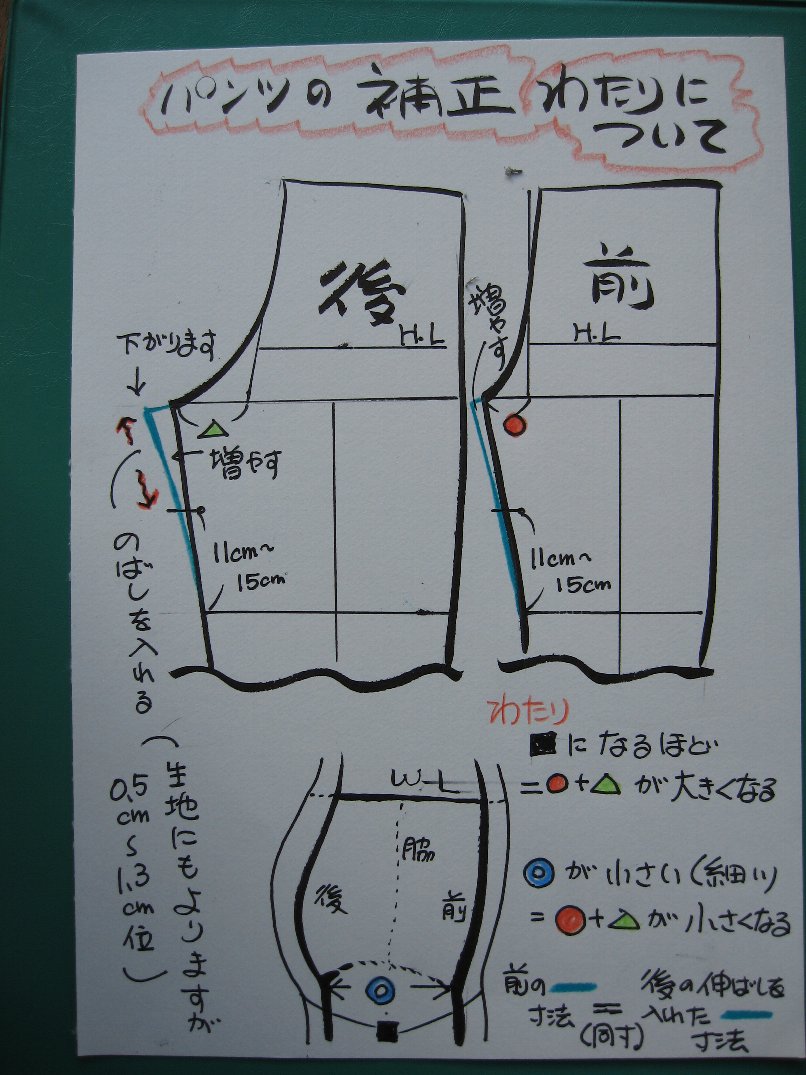 パンツの 補正 わたりに
ついて
後
H.L
前
H.L
増やす
下がります
増やす
11cm〜
15cm
11cm〜
15cm
のばしを入れる
(生地にもよりますが
0.5cm〜1.3cm位)
わたり
■に なるほど
=●+△ が 大きくなる
W-L
脇
後
前
◎
■
◎が 小さい(細い)
=●+△が 小さくなる
前の ー 寸法 = (同寸) 後の伸ばしを入れた ー 寸法